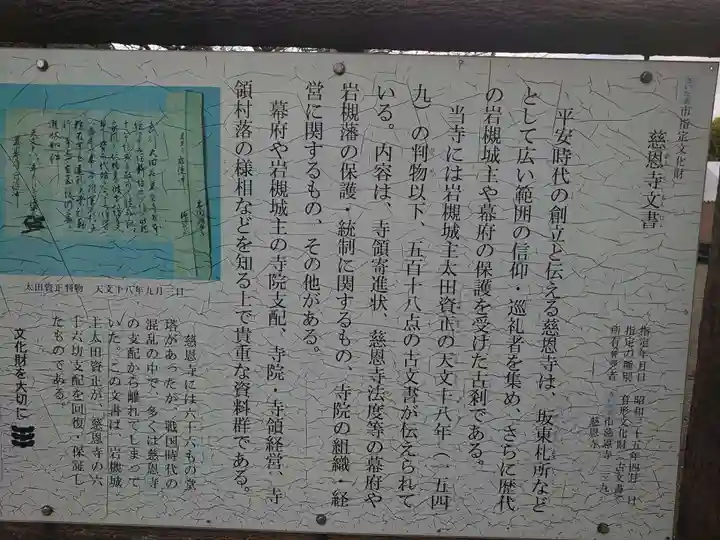 市指定文化財
慈恩寺文書
指定年月日 昭和三十五年四月一日
指定の種別 有形文化財 古文書
所有管理者
慈恩寺
平安時代の創立と伝える慈恩寺は、坂東札所など
として広い範囲の信仰・巡礼者を集め、さらに歴代
の岩槻城主や幕府の保護を受けた古刹である。
当寺には岩槻城主太田資正の天文十八年(一五四
九)の判物以下、五百十八点の古文書が伝えられて
いる。内容は、寺領寄進状、慈恩寺法度等の幕府や
岩槻藩の保護・統制に関するもの、寺院の組織・経
営に関するもの、その他がある。
幕府や岩槻城主の寺院支配、寺院・寺領経営、寺
領村落の様相などを知る上で貴重な資料群である。
太田資正判物 天文十八年九月三日
慈恩寺には六十六もの堂
塔があったが、戦国時代の
混乱の中で、多くは慈恩寺
の支配から離れてしまって
いた。この文書は、岩槻城
主太田資正が、慈恩寺の六
十六坊支配を回復・保証し
たものである。
文化財を大切に